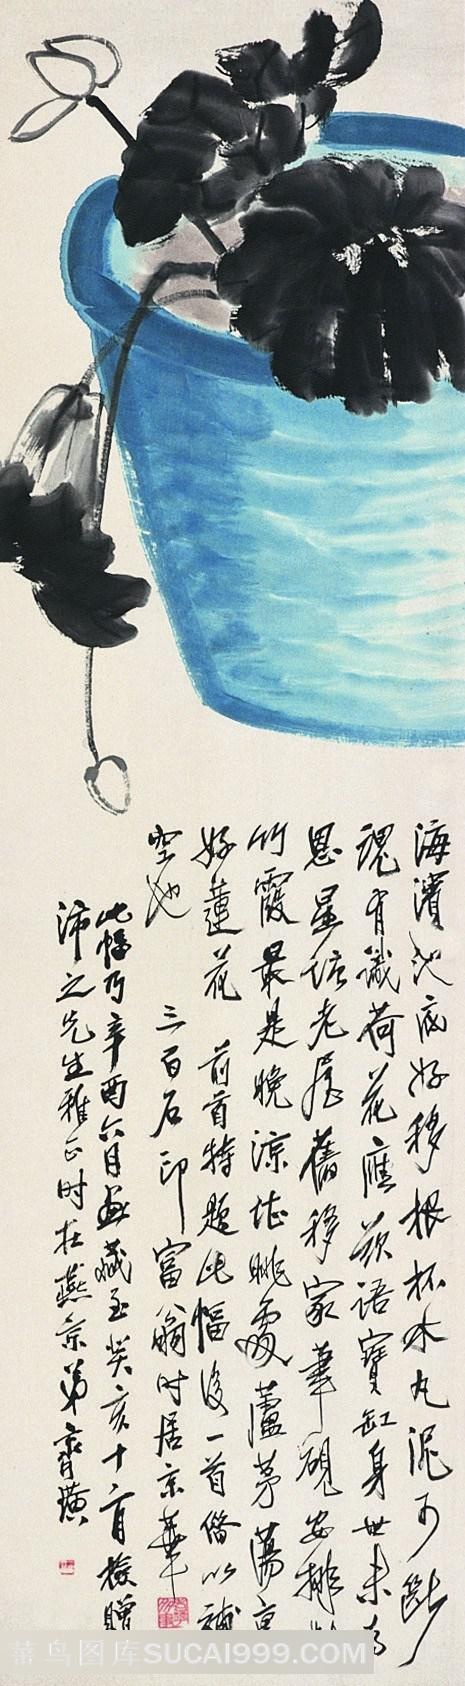 海濱池底好移根杯水丸泥可斷
魂有識荷花應欲語寶缸身世未為
恩星塘老屋舊移家筆硯安排
竹霞最是晚涼堪眺處蘆茅蕩
好蓮花 前首特題此幅後一首借以補
空也 三百石印富翁時居京華
此幅乃辛酉六月畫藏至癸亥十二月檢贈
沛之先生雅正時在燕京弟齊璜
菜鸟图库SUCAI999.COM